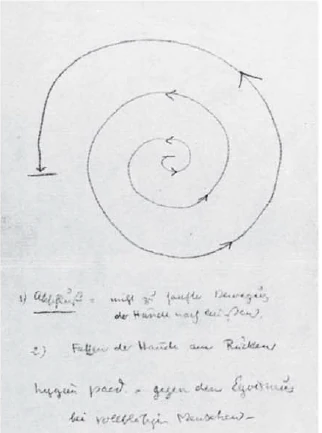 1) Abschluß = nicht zu sanfte Bewegung
der Hände nach außen
2.) Falten der Hände am Rücken
hygien paed. = gegen den Egoismus
bei vollblütigen Menschen –